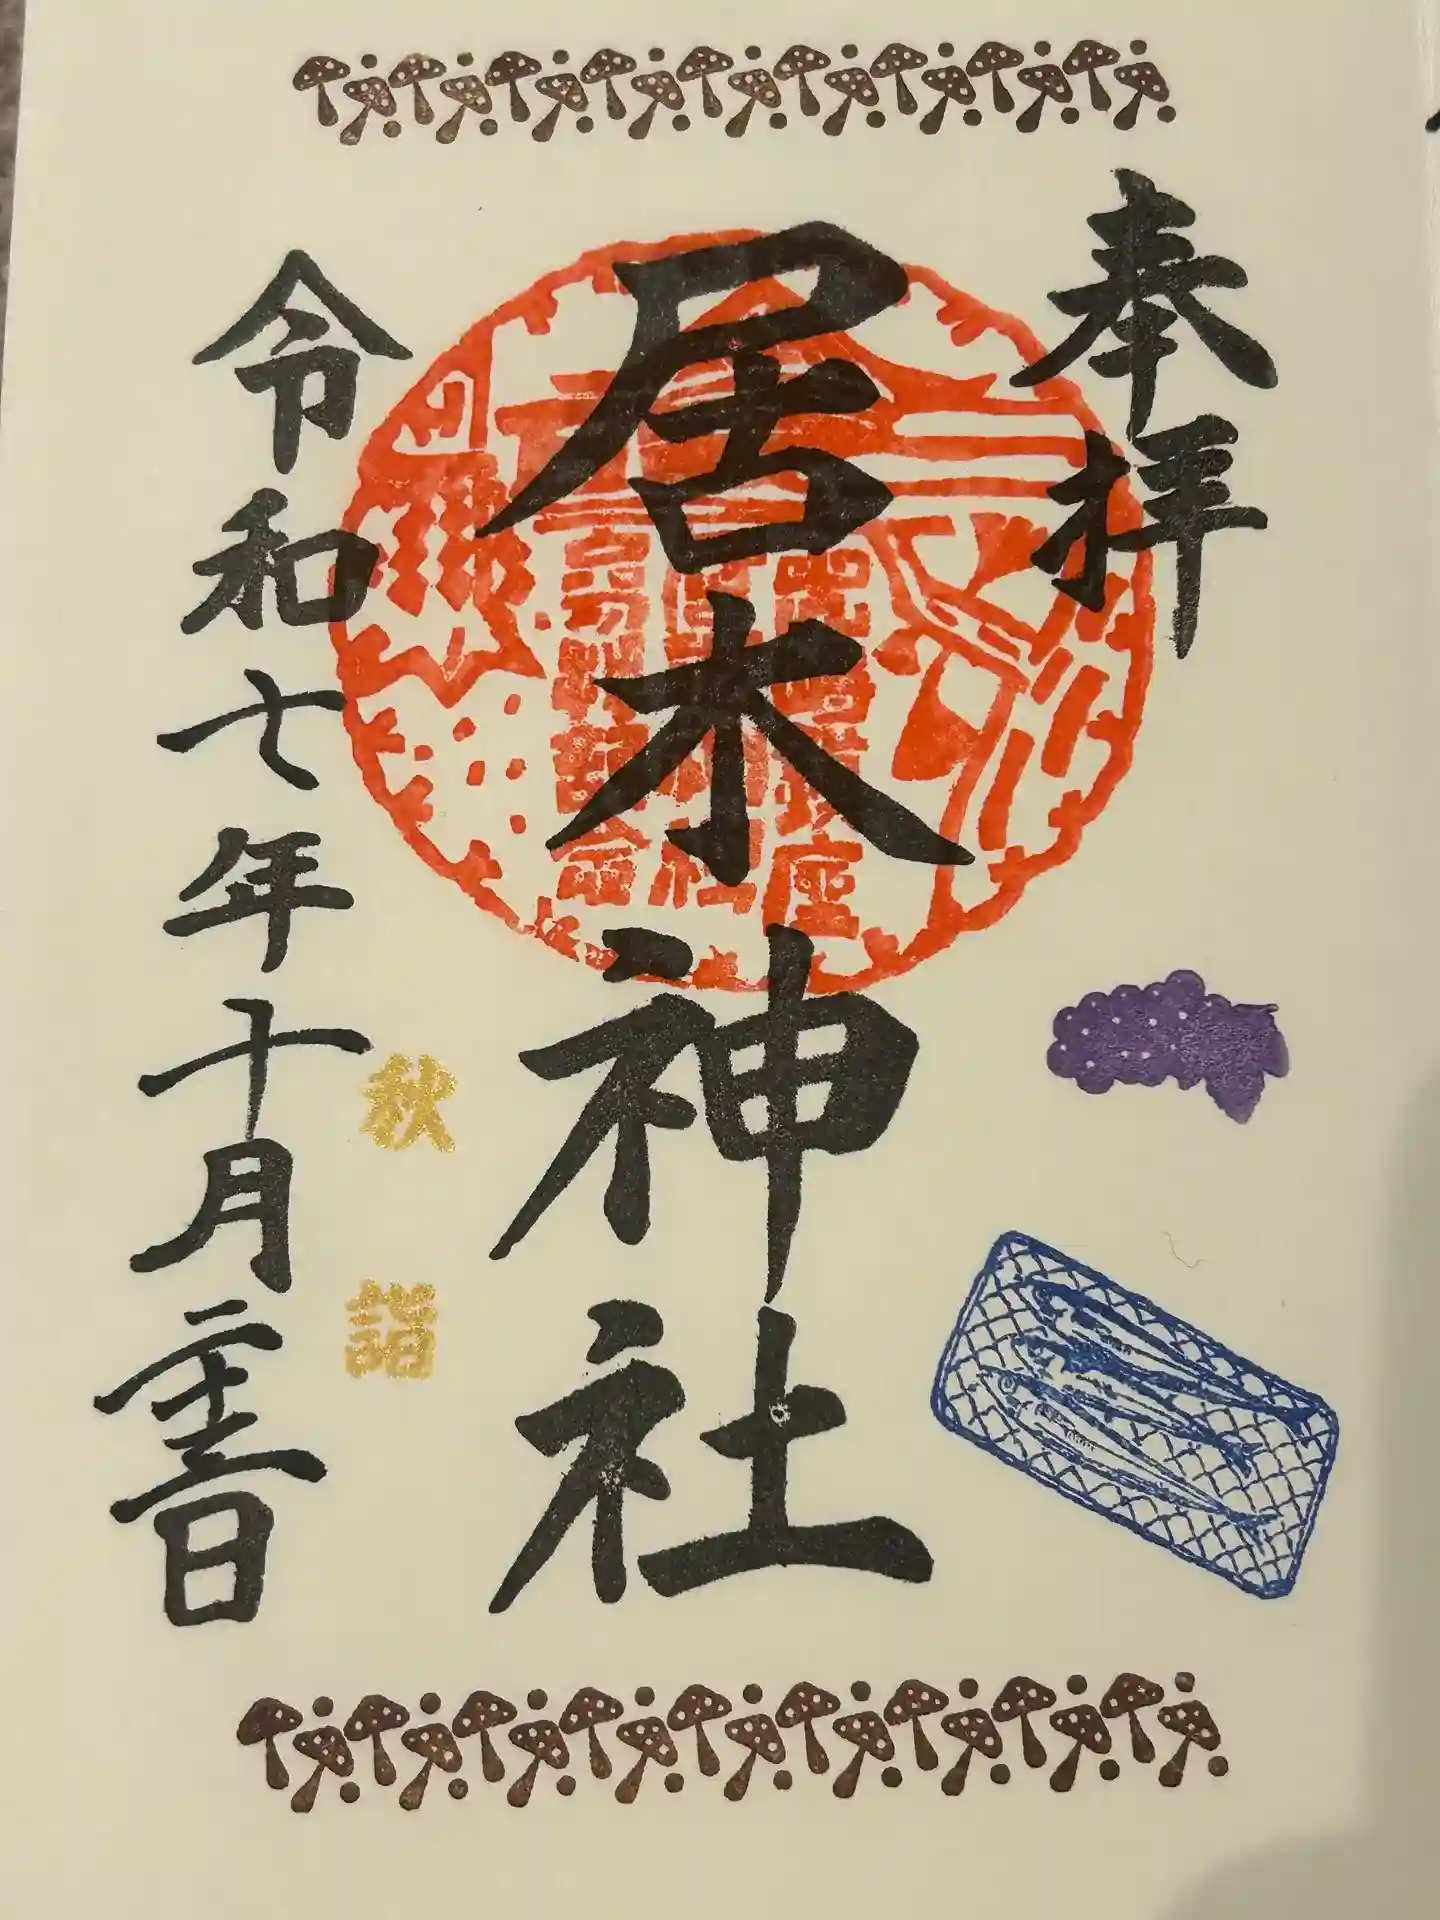 奉拝
居木神社
秋詣
令和七年十月二十三日